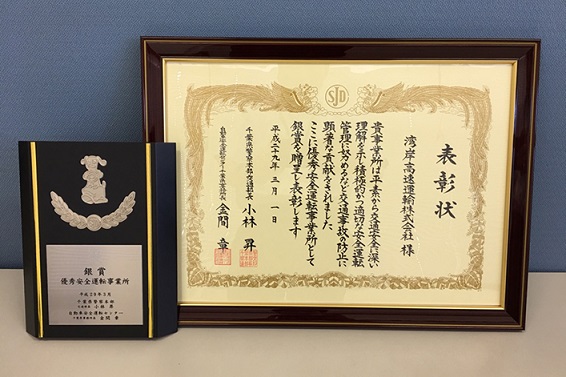 SJD
表彰状
湾岸高速運輸株式会社 様
貴事業所は平素から交通安全に深い
理解を示し積極的かつ適切な安全運転
管理に努めるなど交通事故の防止に
顕著な貢献をされました
ここに優秀安全運転事業所として
銀賞を贈呈し表彰します
平成二十九年三月一日
千葉県警察本部交通部長 小林 昇
自動車安全運転センター千葉県事務所長 金間 章
銀賞
優秀安全運転事業所
平成29年3月
千葉県警察本部
交通部長 小林 昇
自動車安全運転センター
千葉県事務所長 金間 章